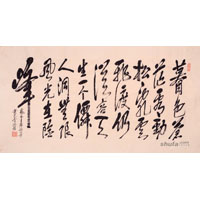 暮色蒼
茫看勁
松亂雲
飛渡仍
從容天
生一個僊
人洞無限
風光在險
峯